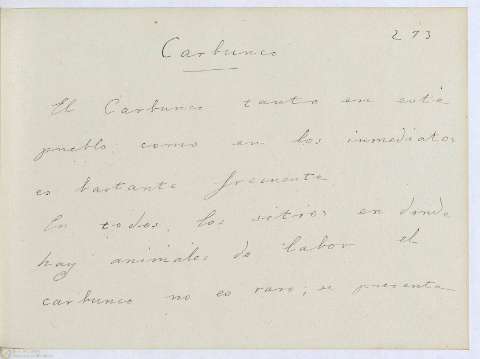 273
Carbunco
El Carbunco tanto en este
pueblo como en los inmediatos
es bastante frecuente
En todos, los sitios en donde
hay animales de labor el
carbunco no es raro; se presenta